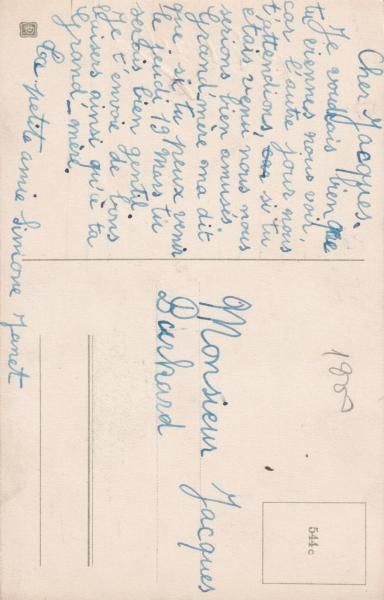 Cher Jacques.
Je voudrais bien que
tu viennes nous voir,
car l'autre jour nous
t'attendions, si tu
étais venu nous nous
serions bien amusés
Grand'mère m'a dit
que si tu peux venir
le jeudi 19 mars tu
serais bien gentil
Je t'envoie de bons
baisers ainsi qu'à ta
Grand-mère.
Ta petite amie Simone Janet
Monsieur Jacques
Durhard
190
544c